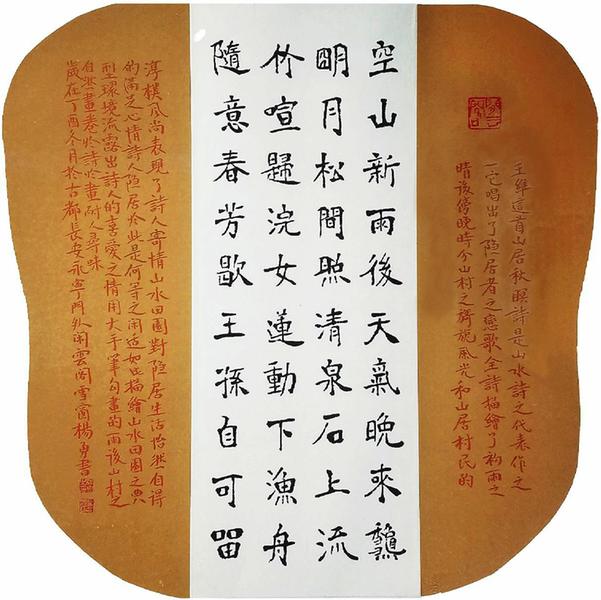 王維這首山居秋暝詩是山水詩之代表作之
一它唱出了隐居者之戀歌全詩描繪了初雨之
晴後傍晚時分山村之旖旎風光和山居村民的
空山新雨後天氣晚來龝
明月松間照清泉石上流
竹喧歸浣女蓮動下漁舟
隨意春芳歇王孫自可留
淳樸風尚表現了詩人寄情山水田園對隐居生活怡然自得
的滿足心情詩人隐居於此是何等之闲適如此描繪山水田園之典
型環境流露出詩人的喜愛之情用大手筆勾畫的雨後山村之
自然畫卷於詩於畫耐人尋味
歲在丁酉冬月於古都長安永寧門外闲雲閣雪窗楊勇書